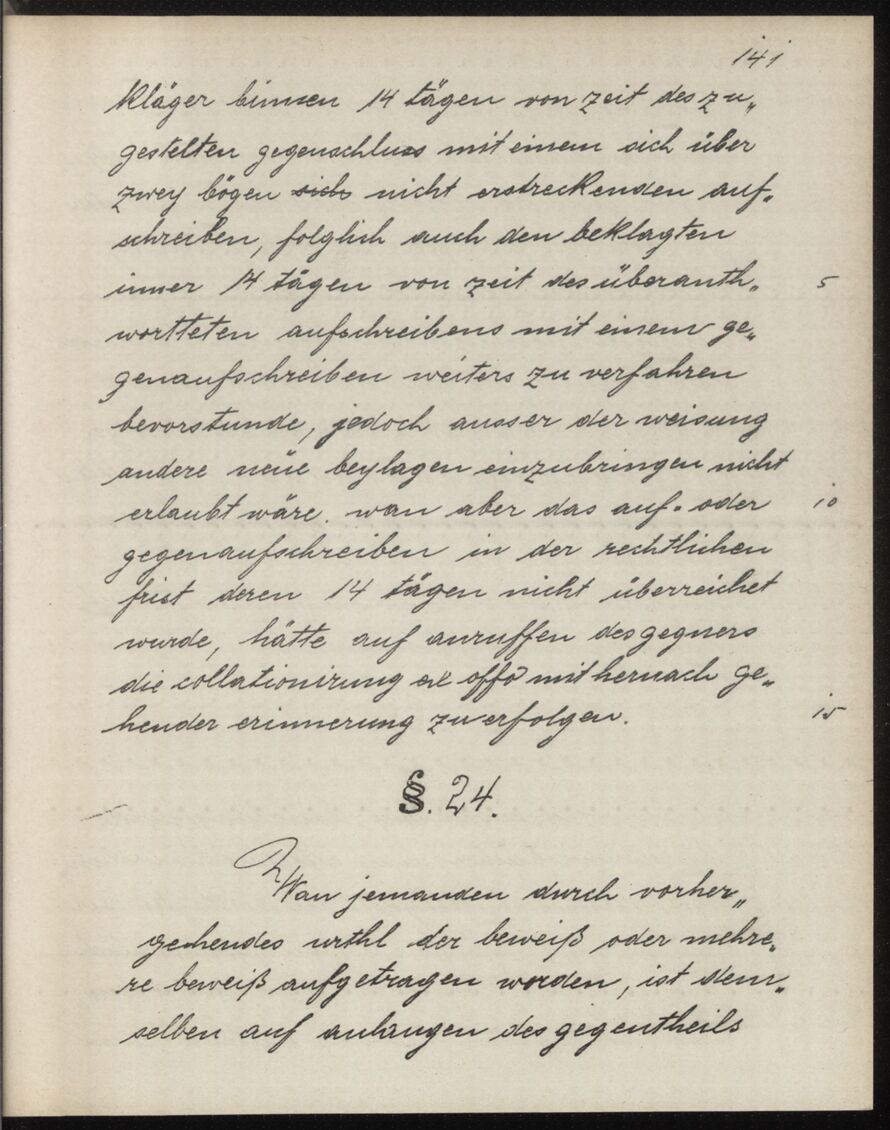 141
kläger binnen 14 tägen von zeit des zu„
gestelten gegenschluss mit einem sich über
zwey bögen sich nicht erstreckenden auf„
schreiben, folglich auch den beklagten
inner 14 tägen von zeit des überanth„ 5
wortteten aufschreibens mit einem ge„
genaufschreiben weiters zu verfahren
bevorstunde, jedoch ausser der weisung
andere neüe beylagen einzubringen nicht
erlaubt wäre. wan aber das auf- oder 10
gegenaufschreiben in der rechtlichen
frist deren 14 tägen nicht überreichet
wurde, hätte auf anruffen des gegners
die collationirung ex offo mit hernach ge„
hender erinnerung zu erfolgen. 15
§. 24.
Wan jemanden durch vorher„
gehendes urthl der beweiß oder mehre„
re beweiß aufgetragen worden, ist dem„
selben auf anlangen des gegentheils